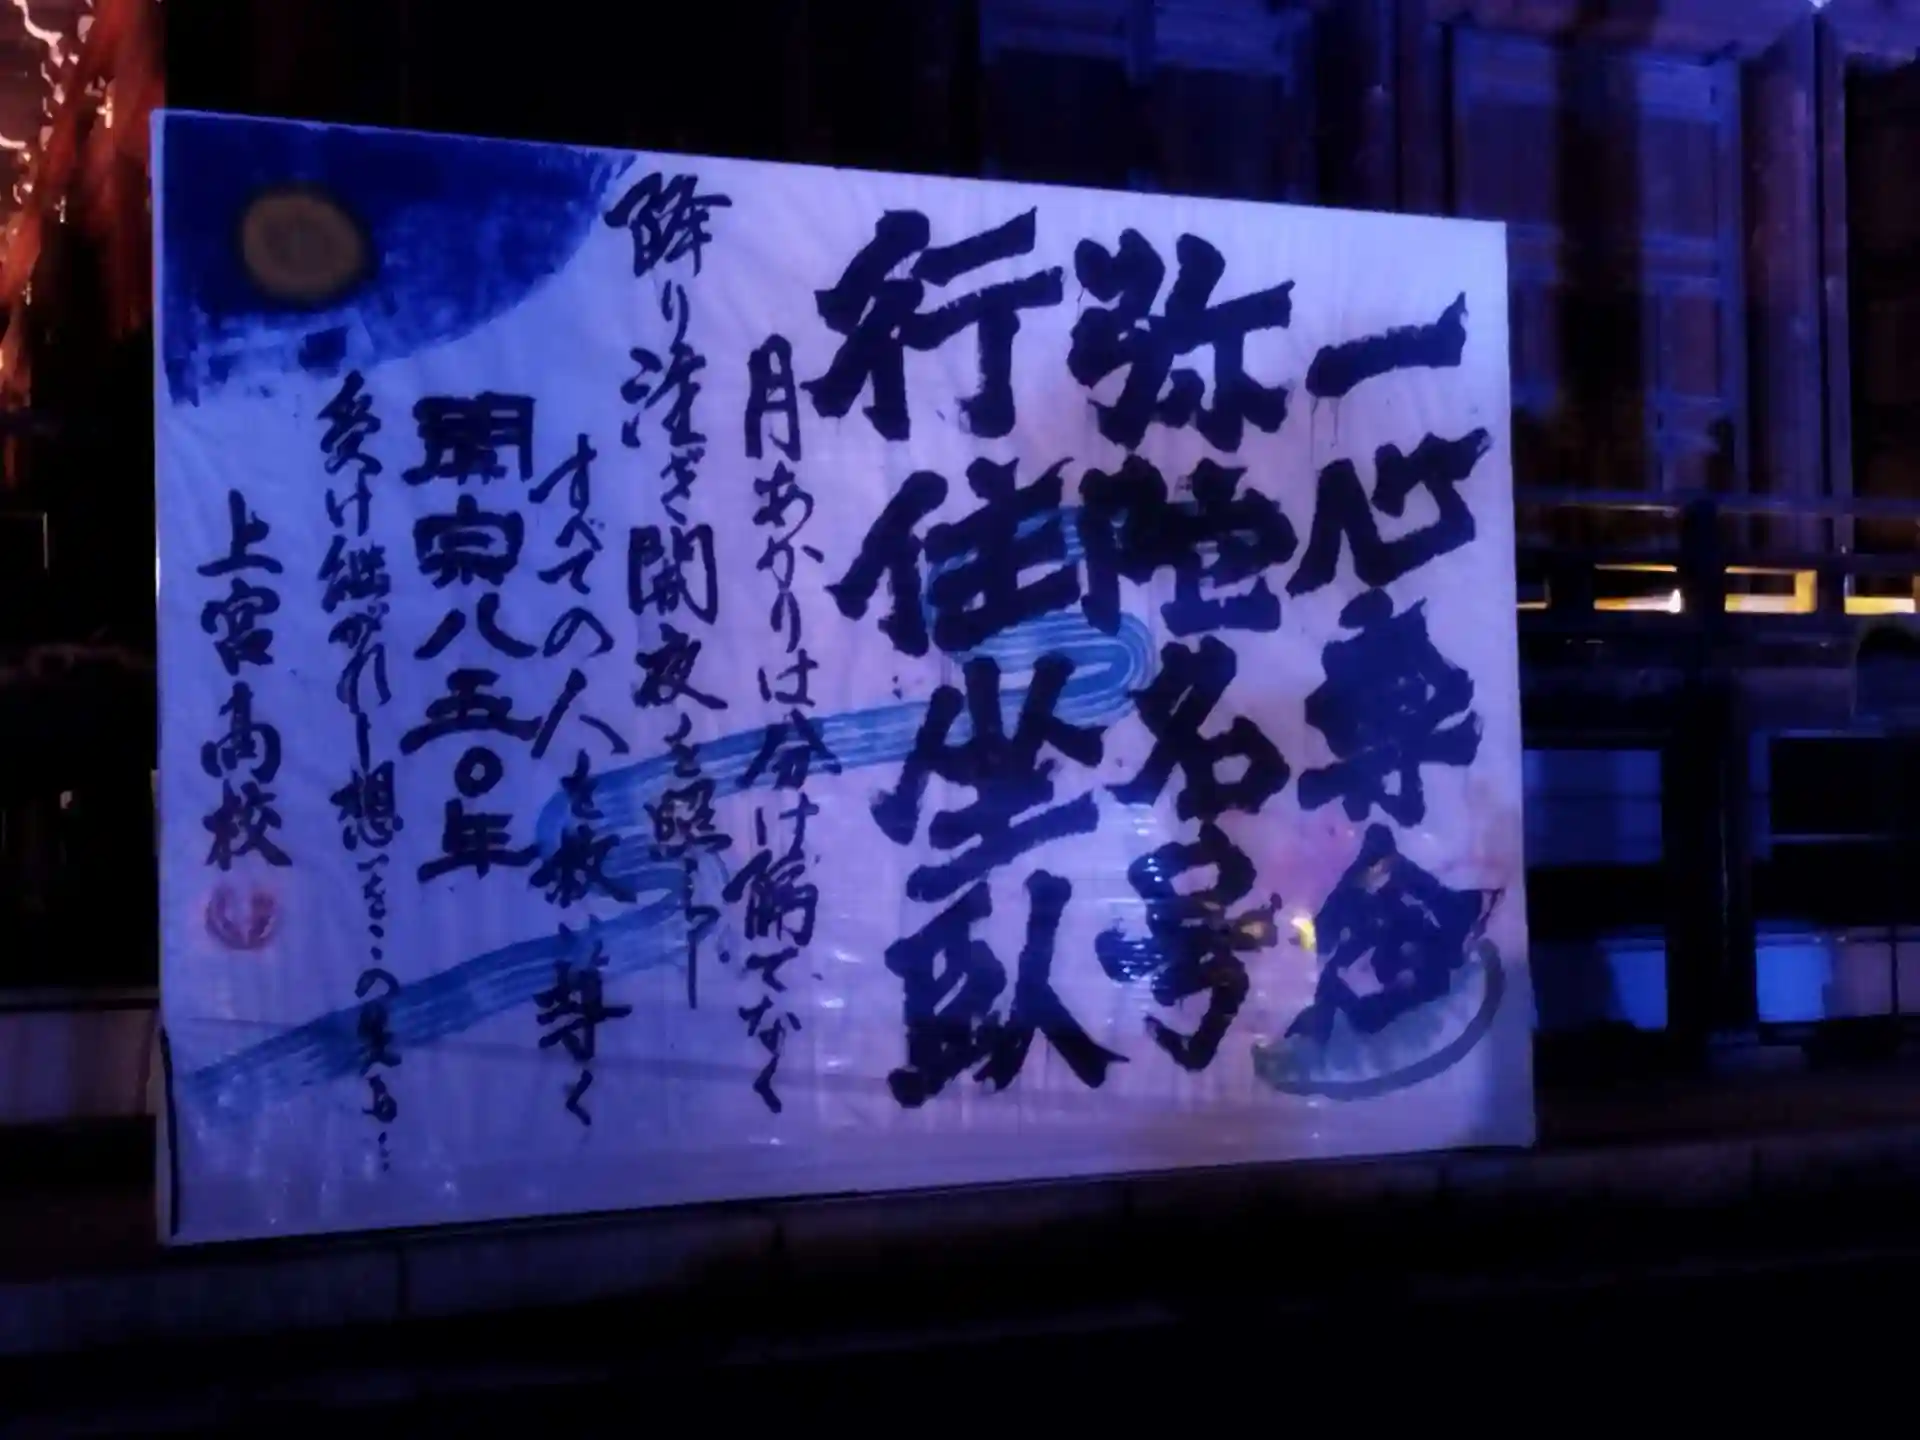 一心専念
弥陀名号
行住坐臥
月あかりは分け隔てなく
降り注ぎ闇夜を照らす
すべての人を救い導く
開宗八五〇年
受け継がれし想いをこの先も…
上宮高校